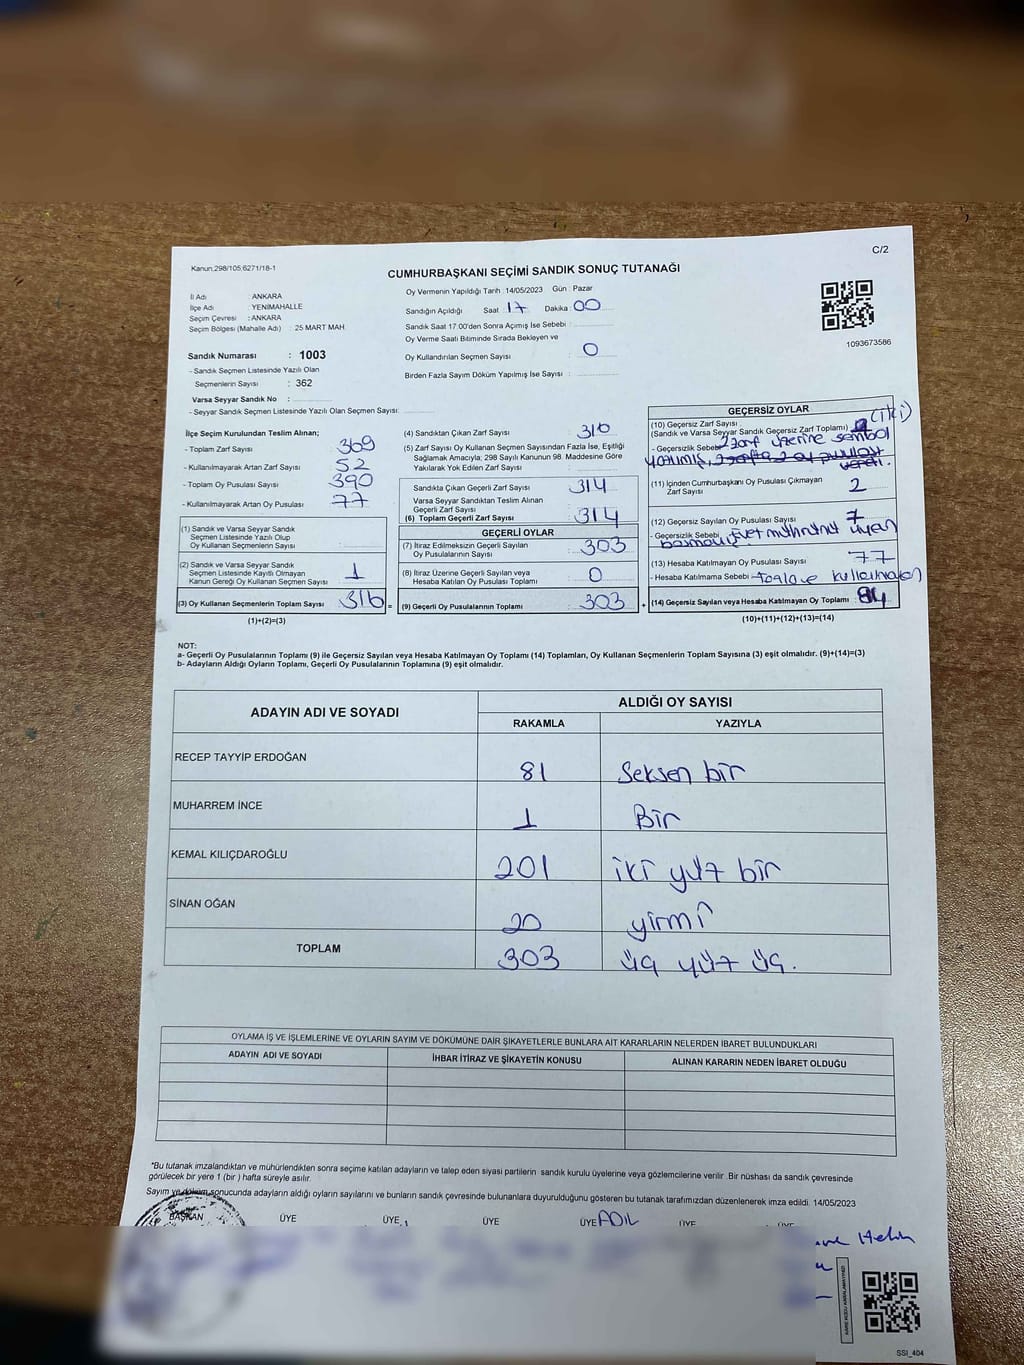 C/2
Kanun;298/105;6271/18-1
CUMHURBAŞKANI SEÇİMİ SANDIK SONUÇ TUTANAĞI
İl Adı : ANKARA
İlçe Adı : YENİMAHALLE
Seçim Çevresi : ANKARA
Seçim Bölgesi (Mahalle Adı) : 25 MART MAH.
Sandık Numarası : 1003
- Sandık Seçmen Listesinde Yazılı Olan
Seçmenlerin Sayısı : 362
Varsa Seyyar Sandık No :
- Seyyar Sandık Seçmen Listesinde Yazılı Olan Seçmen Sayısı:
Oy Vermenin Yapıldığı Tarih : 14/05/2023 Gün : Pazar
Sandığın Açıldığı Saat : 17 Dakika : 00
Sandık Saat 17:00'den Sonra Açımış İse Sebebi :
Oy Verme Saati Bitiminde Sırada Bekleyen ve
Oy Kullandırılan Seçmen Sayısı : 0
Birden Fazla Sayım Döküm Yapılmış İse Sayısı :
1093673586
İlçe Seçim Kurulundan Teslim Alınan;
- Toplam Zarf Sayısı : 369
- Kullanılmayarak Artan Zarf Sayısı : 52
- Toplam Oy Pusulası Sayısı : 390
- Kullanılmayarak Artan Oy Pusulası : 77
(1) Sandık ve Varsa Seyyar Sandık
Seçmen Listesinde Yazılı Olup
Oy Kullanan Seçmenlerin Sayısı :
(2) Sandık ve Varsa Seyyar Sandık
Seçmen Listesinde Kayıtlı Olmayan
Kanun Gereği Oy Kullanan Seçmen Sayısı : 1
(3) Oy Kullanan Seçmenlerin Toplam Sayısı : 316
(1)+(2)=(3)
(4) Sandıktan Çıkan Zarf Sayısı : 316
(5) Zarf Sayısı Oy Kullanan Seçmen Sayısından Fazla İse, Eşitliği
Sağlamak Amacıyla; 298 Sayılı Kanunun 98. Maddesine Göre
Yakılarak Yok Edilen Zarf Sayısı :
Sandıkta Çıkan Geçerli Zarf Sayısı : 314
Varsa Seyyar Sandıktan Teslim Alınan
Geçerli Zarf Sayısı :
(6) Toplam Geçerli Zarf Sayısı : 314
GEÇERLİ OYLAR
(7) İtiraz Edilmeksizin Geçerli Sayılan
Oy Pusulalarının Sayısı : 303
(8) İtiraz Üzerine Geçerli Sayılan veya
Hesaba Katılan Oy Pusulası Toplamı : 0
(9) Geçerli Oy Pusulalarının Toplamı : 303
GEÇERSİZ OYLAR
(10) Geçersiz Zarf Sayısı
(Sandık ve Varsa Seyyar Sandık Geçersiz Zarf Toplamı) : 2 (iki)
- Geçersizlik Sebebi : 2 zarf üzerine sembol
yazılmış, 2 zarfta 2 oy pusulası
(11) İçinden Cumhurbaşkanı Oy Pusulası Çıkmayan
Zarf Sayısı : 2
(12) Geçersiz Sayılan Oy Pusulası Sayısı : 7
- Geçersizlik Sebebi : Evet mührünü
(13) Hesaba Katılmayan Oy Pusulası Sayısı : 77
- Hesaba Katılmama Sebebi :
(14) Geçersiz Sayılan veya Hesaba Katılmayan Oy Toplamı : 84
(10)+(11)+(12)+(13)=(14)
NOT:
a- Geçerli Oy Pusulalarının Toplamı (9) ile Geçersiz Sayılan veya Hesaba Katılmayan Oy Toplamı (14) Toplamları, Oy Kullanan Seçmenlerin Toplam Sayısına (3) eşit olmalıdır. (9)+(14)=(3)
b- Adayların Aldığı Oyların Toplamı, Geçerli Oy Pusulalarının Toplamına (9) eşit olmalıdır.
ADAYIN ADI VE SOYADI ALDIĞI OY SAYISI
RAKAMLA YAZIYLA
RECEP TAYYİP ERDOĞAN 81 Seksen bir
MUHARREM İNCE 1 Bir
KEMAL KILIÇDAROĞLU 201 iki yüz bir
SİNAN OĞAN 20 yirmi
TOPLAM 303 üç yüz üç.
OYLAMA İŞ VE İŞLEMLERİNE VE OYLARIN SAYIM VE DÖKÜMÜNE DAİR ŞİKAYETLERLE BUNLARA AİT KARARLARIN NELERDEN İBARET BULUNDUKLARI
ADAYIN ADI VE SOYADI İHBAR İTİRAZ VE ŞİKAYETİN KONUSU ALINAN KARARIN NEDEN İBARET OLDUĞU
"Bu tutanak imzalandıktan ve mühürlendikten sonra seçime katılan adayların ve talep eden siyasi partilerin sandık kurulu üyelerine veya gözlemcilerine verilir. Bir nüshası da sandık çevresinde
görülecek bir yere 1 (bir) hafta süreyle asılır.
Sayım ve döküm sonucunda adayların aldığı oyların sayılarını ve bunların sandık çevresinde bulunanlara duyurulduğunu gösteren bu tutanak tarafımızdan düzenlenerek imza edildi. 14/05/2023
BAŞKAN ÜYE ÜYE ÜYE ÜYE ADİL ÜYE ÜYE
SSI_404